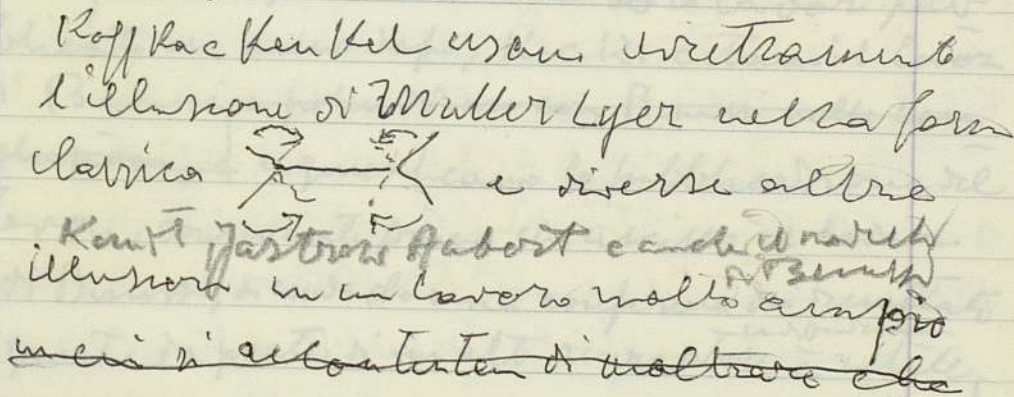 Koffka e Kenkel usano direttamente
l'illusione di Müller Lyer nella forma
classica e diverse altre
Jastrow Aubert e anche
illusioni in un lavoro molto ampio
in cui si accontentano di inoltrare che